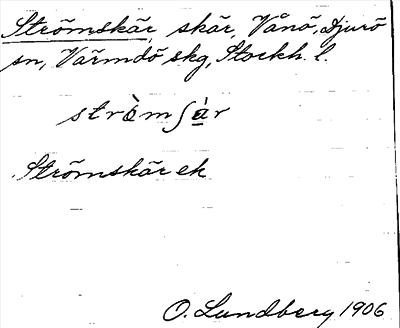 Strömskär, skär, Vånö, Djurö
sn, Värmdö skg, Stockh. l.
strö̀mʃä̀r
Strömskär ek
O. Lundberg 1906